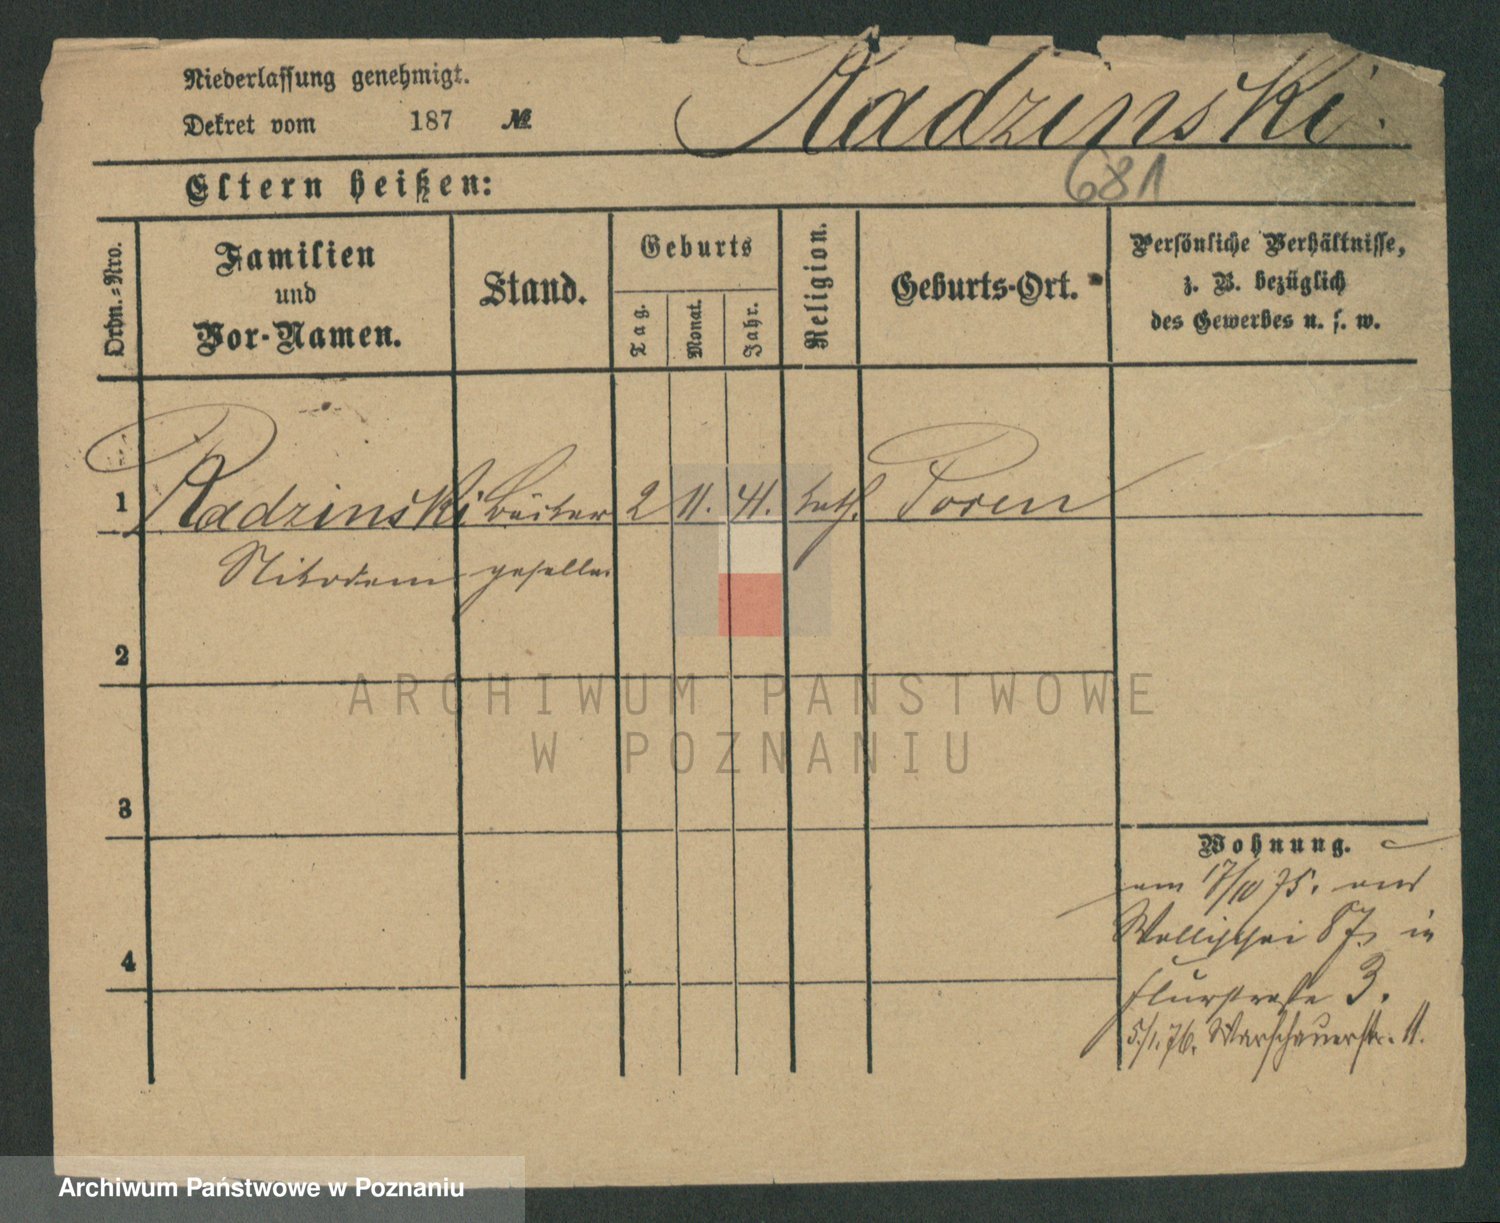 Niederlassung genehmigt.
Dekret vom 187 №
Radzinski.
681
Eltern heißen:
Ordn.-Nro.
Familien
und
Vor-Namen.
Stand.
Geburts
Tag.
Monat.
Jahr.
Religion.
Geburts-Ort.
Persönliche Verhältnisse,
z. B. bezüglich
des Gewerbes u. s. w.
1 Radzinski Bäcker 2 11. 41. kath. Posen
Nikodem geselle.
2
ARCHIWUM PAŃSTWOWE
W POZNANIU
3
Wohnung.
am 17/10 75. aus
Wallischei 87. in
4
Flurstraße 3.
5./1.76. Warschauerstr. 11.
Archiwum Państwowe w Poznaniu